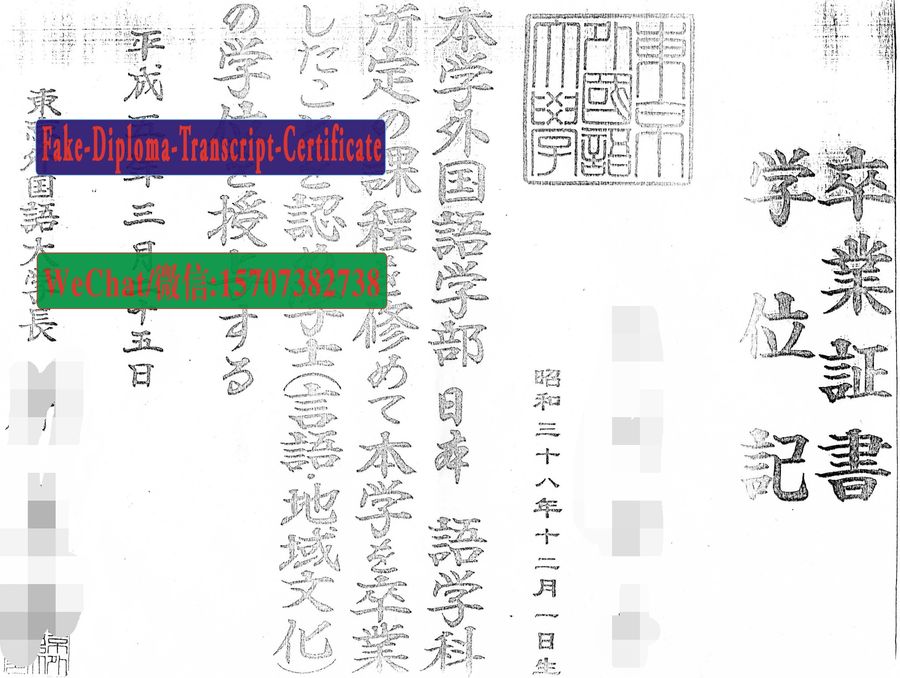 卒業証書
学位記
東京外國語大學
昭和三十八年十二月一日生
本学外国語学部 日本 語学科
所定の課程を修めて本学を卒業
したことを認め学士(言語・地域文化)
の学位を授与する
平成 年三月 十五日
東京外国語大学長
Fake-Diploma-Transcript-Certificate
WeChat/微信:15707382738